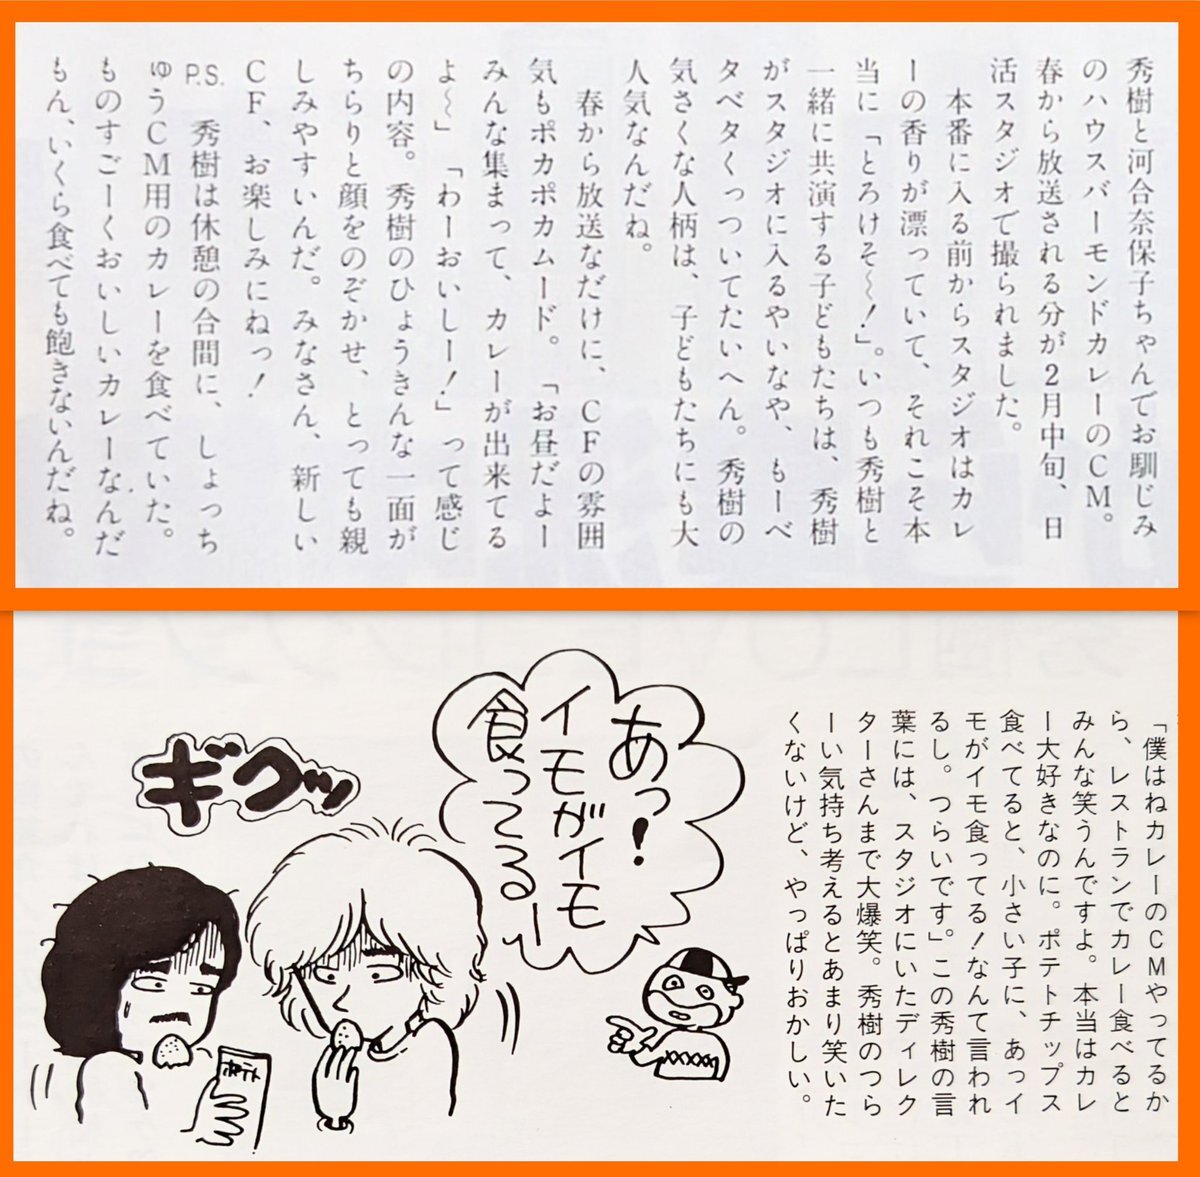 秀樹と河合奈保子ちゃんでお馴じみ
のハウスバーモンドカレーのCM。
春から放送される分が2月中旬、日
活スタジオで撮られました。
本番に入る前からスタジオはカレ
ーの香りが漂っていて、それこそ本
当に「とろけそ〜!」。いつも秀樹と
一緒に共演する子どもたちは、秀樹
がスタジオに入るやいなや、もーベ
タベタくっついてたいへん。秀樹の
気さくな人柄は、子どもたちにも大
人気なんだね。
春から放送なだけに、CFの雰囲
気もポカポカムード。「お昼だよー
みんな集まって、カレーが出来てる
よ〜」「わーおいしー!」って感じ
の内容。秀樹のひょうきんな一面が
ちらりと顔をのぞかせ、とっても親
しみやすいんだ。みなさん、新しい
CF、お楽しみにねっ!
P.S. 秀樹は休憩の合間に、しょっち
ゅうCM用のカレーを食べていた。
ものすごーくおいしいカレーなんだ
もん、いくら食べても飽きないんだね。
「僕はねカレーのCMやってるか
ら、レストランでカレー食べると
みんな笑うんですよ。本当はカレ
ー大好きなのに。ポテトチップス
食べてると、小さい子に、あっイ
モがイモ食ってる!なんて言われ
るし。つらいです。」この秀樹の言
葉には、スタジオにいたディレク
ターさんまで大爆笑。秀樹のつら
ーい気持ち考えるとあまり笑いた
くないけど、やっぱりおかしい。
あっ!
イモがイモ
食ってるー
ギクッ